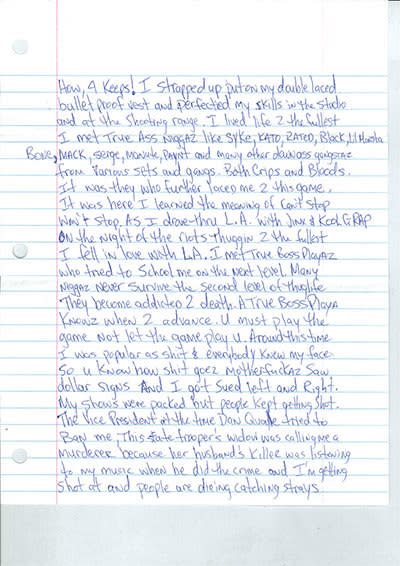 How, 4 Keeps! I strapped up put on my double laced
bullet proof vest and perfected my skills in the studio
and at the shooting range. I lived life 2 the fullest
I met True Ass Niggaz like SyKe, KATO, RATED, Black, Lil Monsta
Bone, MACK, serge, Monkute, and many other down ass gangstaz
from various sets and gangs. Both Crips and Bloods.
It was they who further laced me 2 this game.
It was here I learned the meaning of Can't stop
Won't stop. As I drove thru L.A. with Jinx & Kool G RAP
on the night of the riots Thuggin 2 the fullest
I fell in love with L.A. I met True Boss PlayAZ
who tried to School me on the Next level. Many
Niggaz never survive the Second level of thuglife
They become addicted 2 death. A True Boss Playa
Knowz when 2 advance. U must play the
game Not let the game play u. Around this time
I was popular as shit & everybody Knew my face
So u Know how shit goez Motherfuckaz saw
dollar signs And I got Sued left and Right.
My shows were packed but people Kept getting shot.
The Vice President at the time Dan Quale tried to
Ban me. This state trooper's widow was calling me a
murderer because her husband's Killer was listening
to my music when he did the crime and I'm getting
shot at and people are dieing catching strays